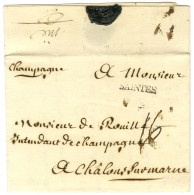 Champagne
A Monsieur
SAINTES
Monsieur de Rouillé
Intendant de champagne
A Châlons sur marne